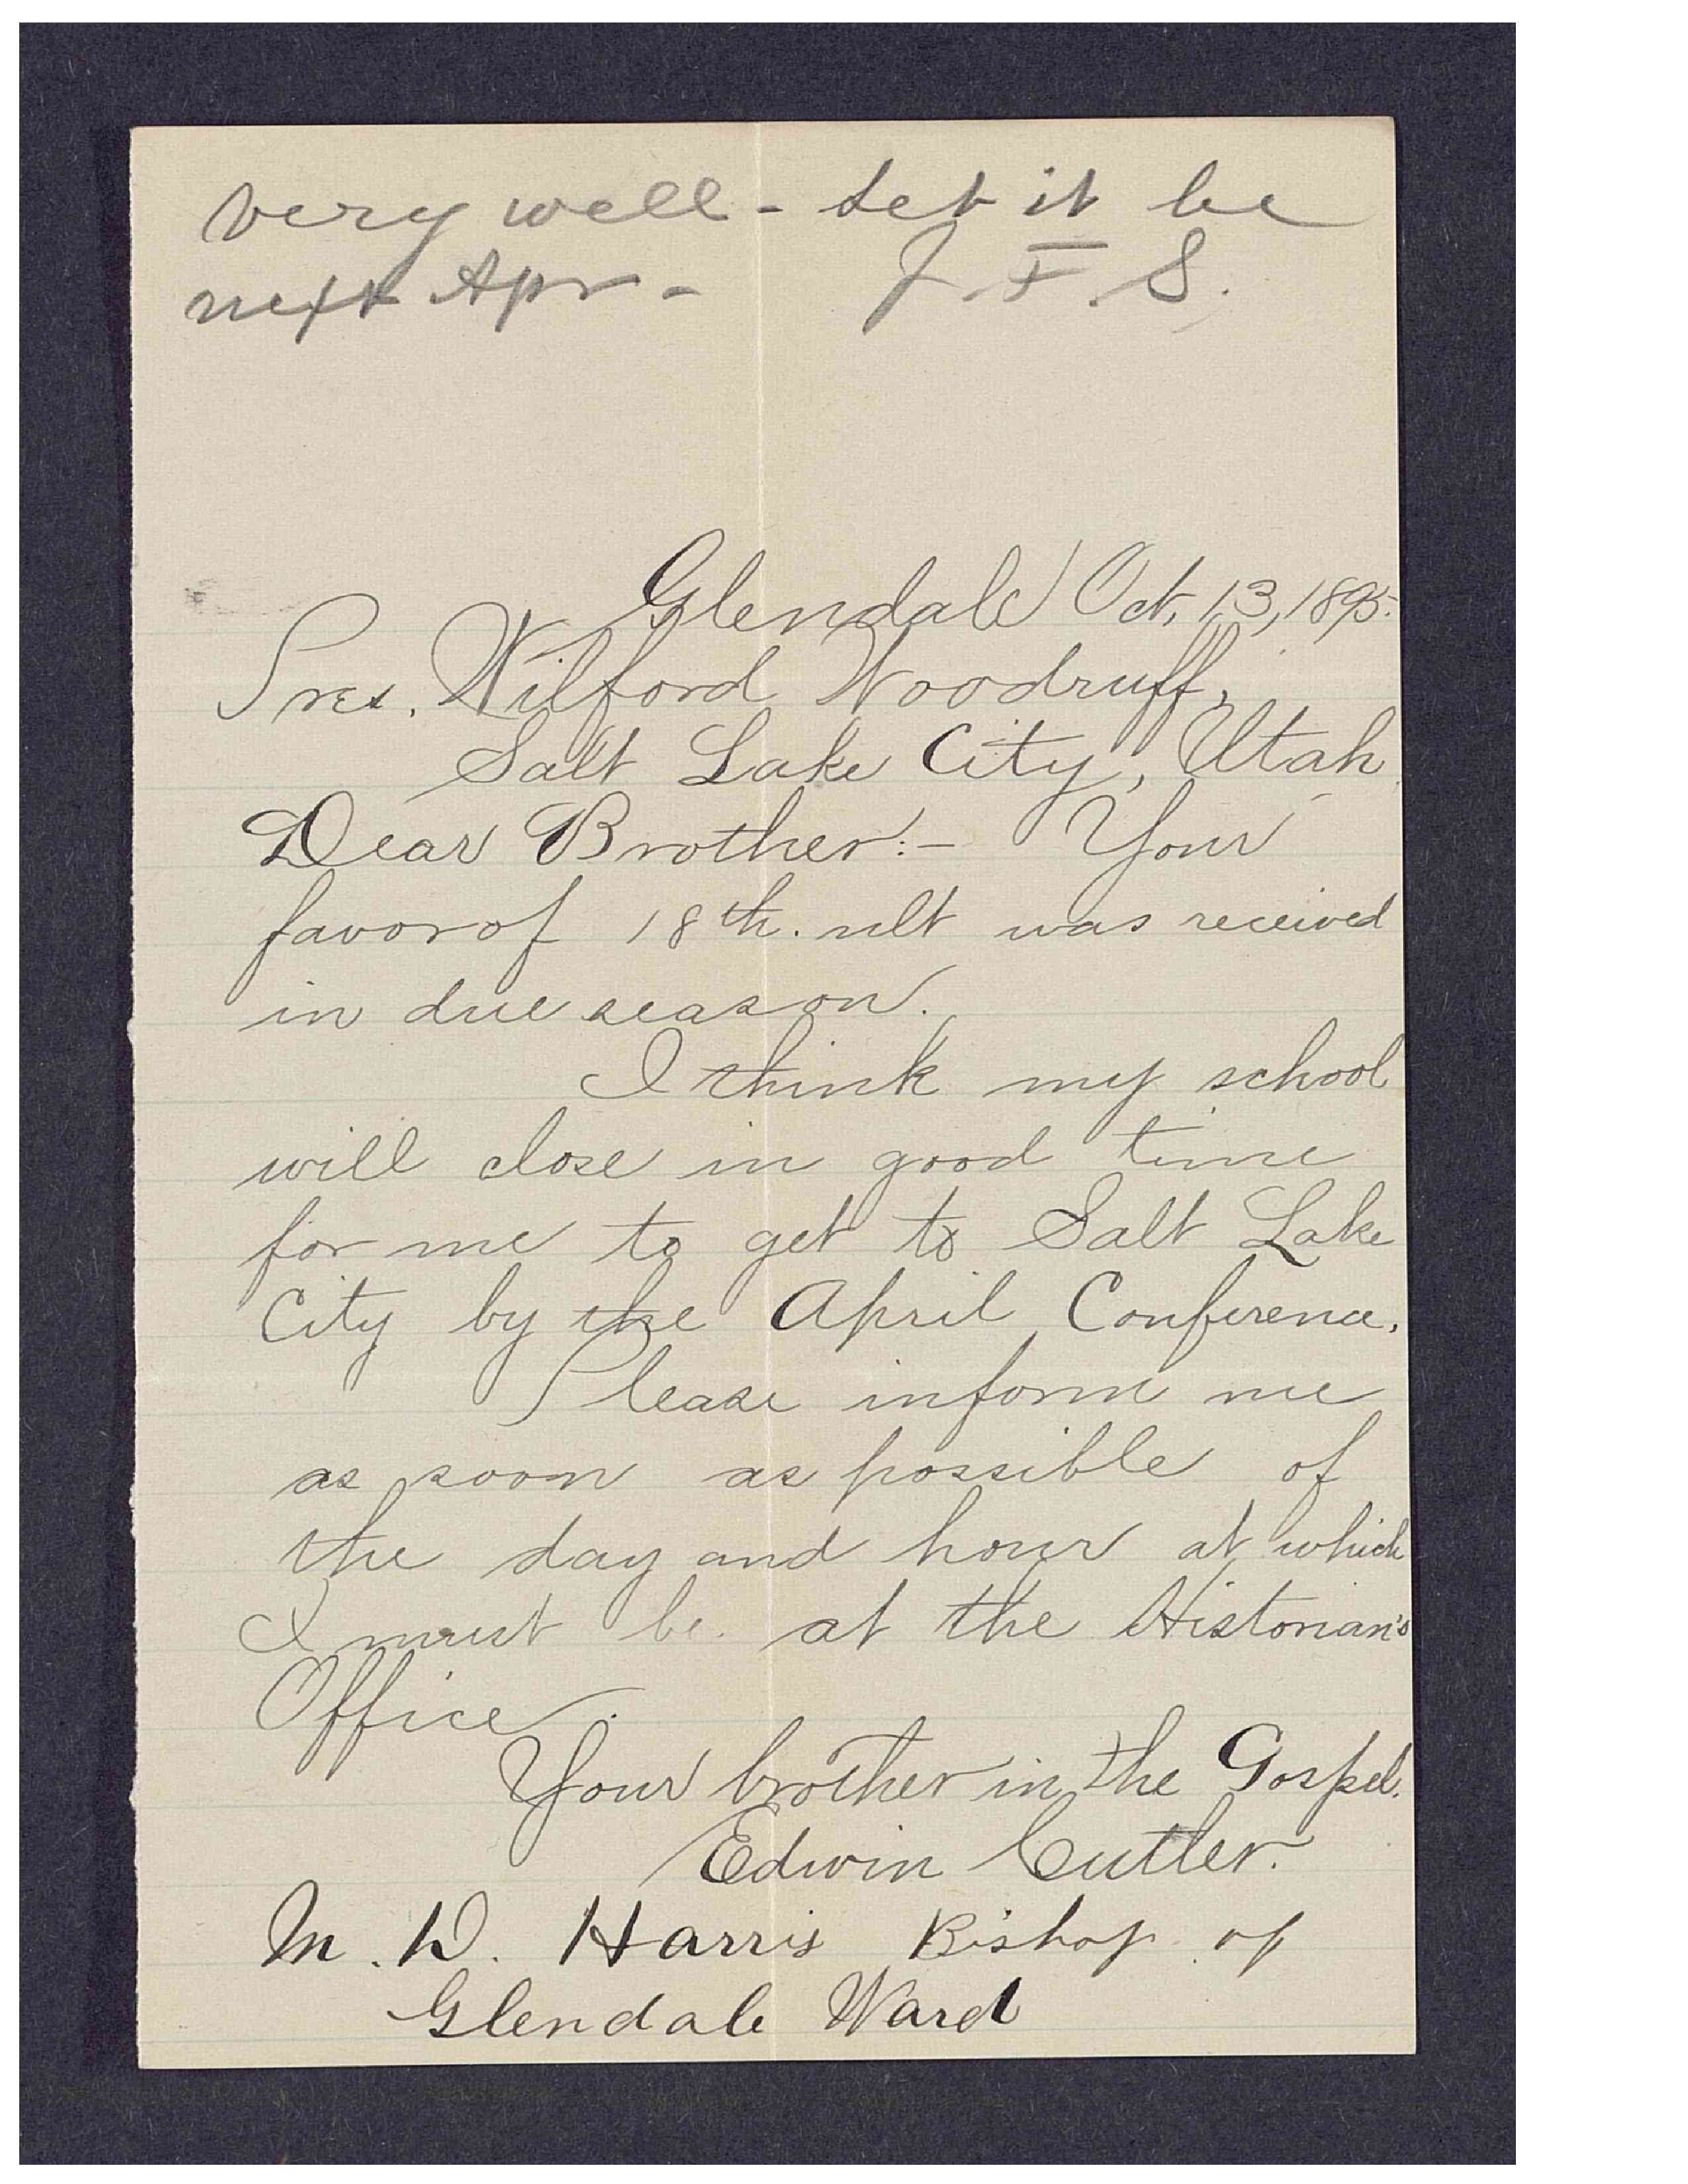 very well - Let it be
next Apr - J. F. S.
Glendale Oct. 13, 1895.
Pres. Wilford Woodruff,
Salt Lake City, Utah
Dear Brother:- Your
favor of 18th. ult was received
in due season.
I think my school
will close in good time
for me to get to Salt Lake
City by the April Conference.
Please inform me
as soon as possible of
the day and hour at which
I must be at the Historian's
Office.
Your brother in the Gospel.
Edwin Cutler.
M. D. Harris Bishop of
Glendale Ward